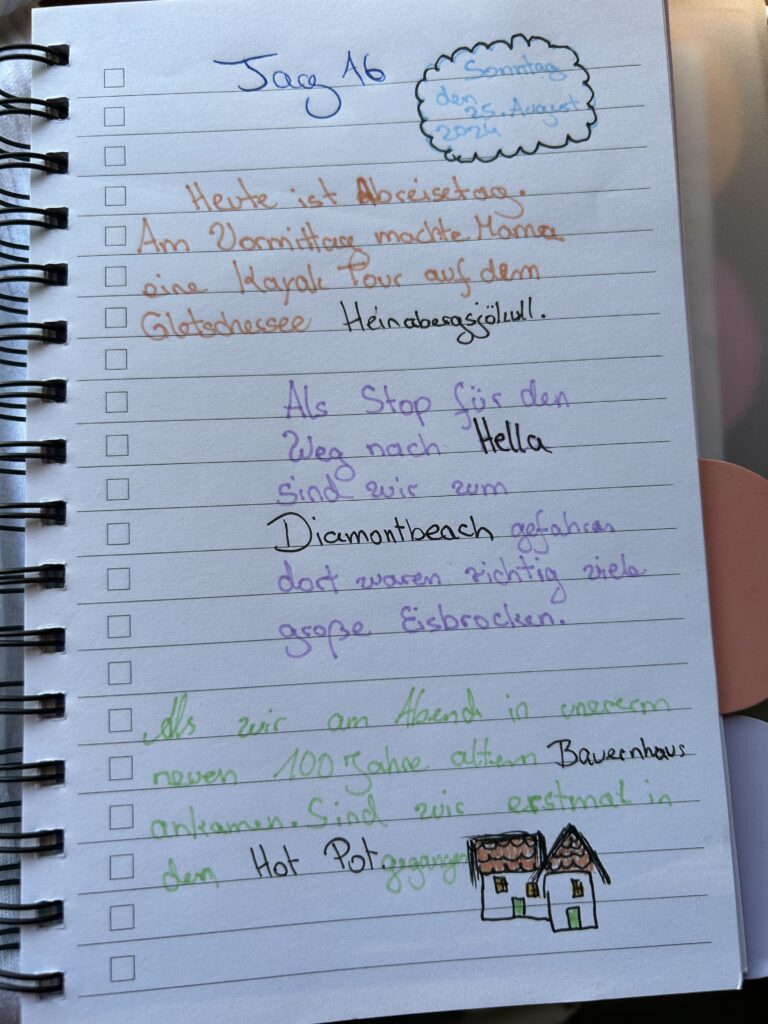 Tag 16
Sonntag
den
25. August
2024
Heute ist Abreisetag.
Am Vormittag machte Mama
eine Kayak Tour auf dem
Gletschersee Heinabergsjökull.
Als Stop für den
Weg nach Hella
sind wir zum
Diamontbeach gefahren
dort waren richtig viele
große Eisbrocken.
Als wir am Abend in unererm
neuen 100 Jahre altem Bauernhaus
ankamen. Sind wir erstmal in
den Hot Pot gegangen